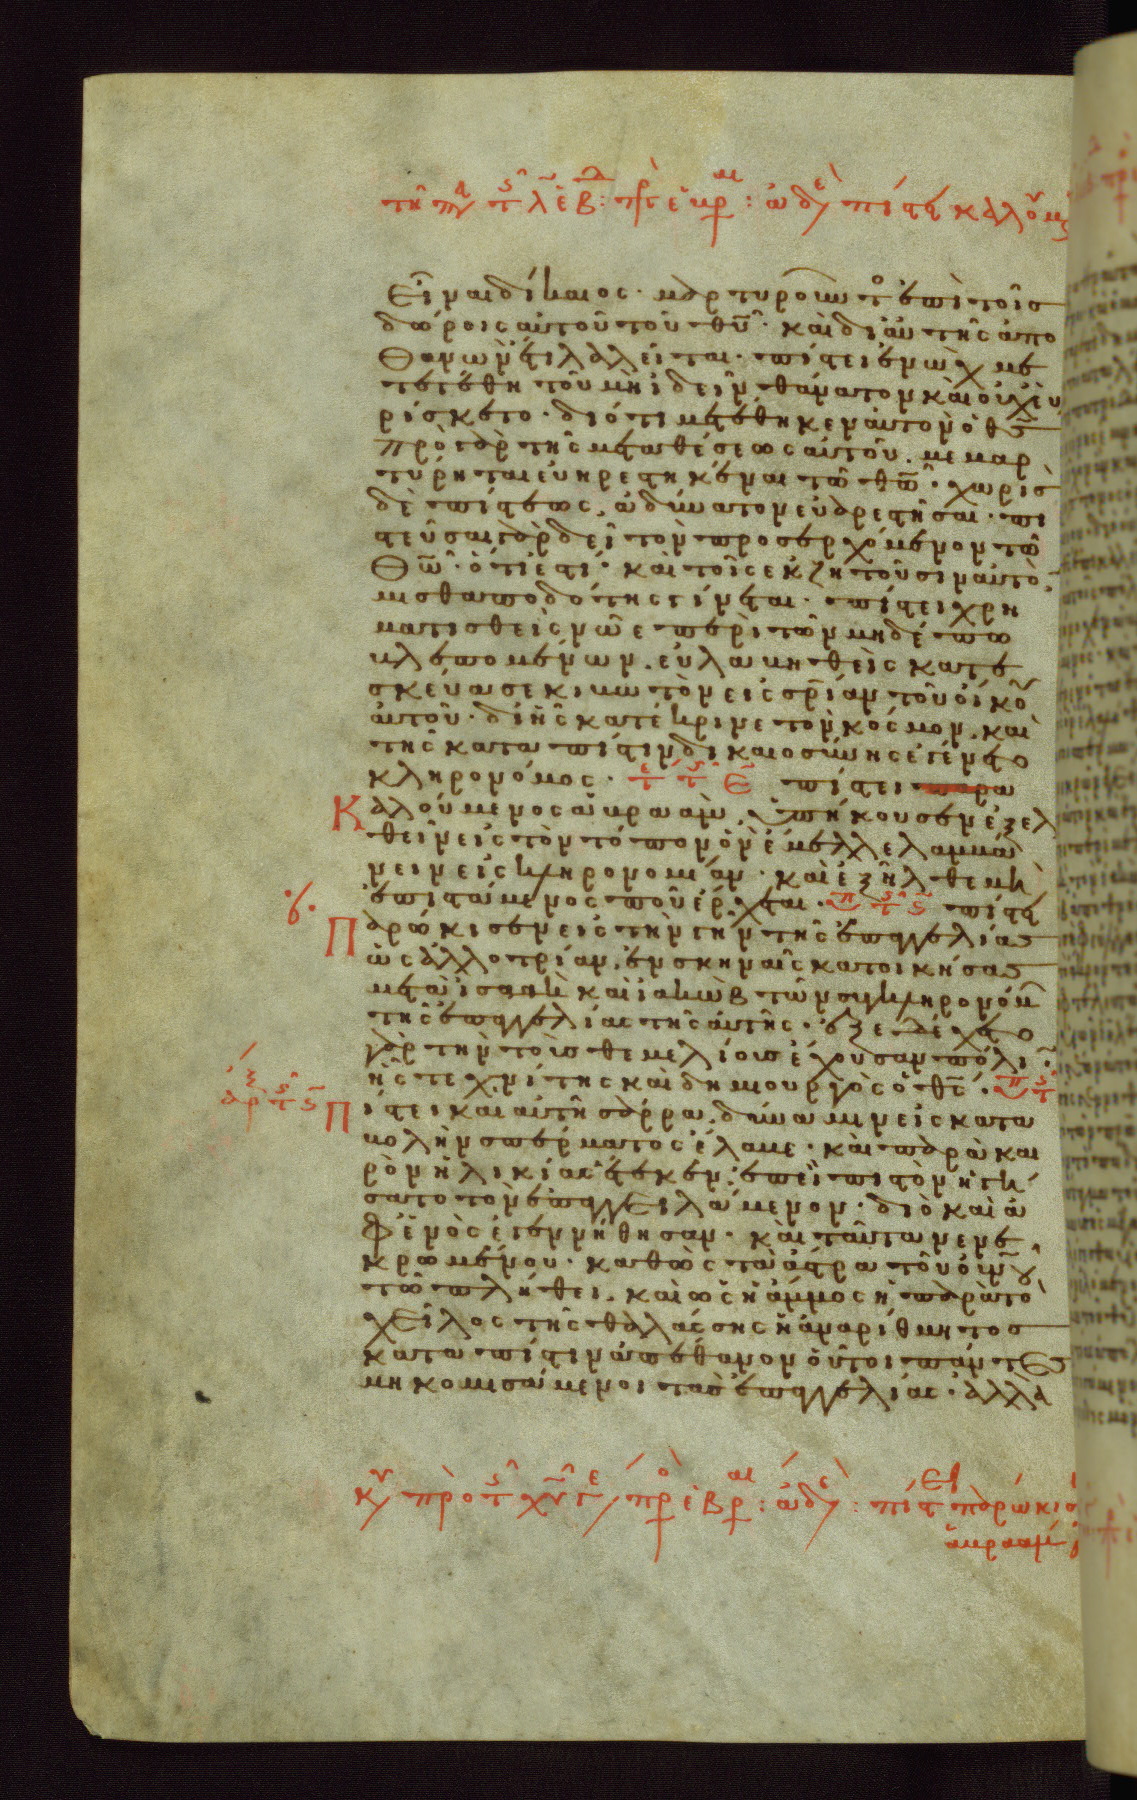 εἶναι δίκαιος· μαρτυροῦντο(ς) ἐπὶ τοῖς
δώροις αὐτοῦ τοῦ θῦ· καὶ δι αὐτῆς ἀπο
θανὼν ἔτι λαλεῖται· πίστει ἐνὼχ με
τετέθη τοῦ μὴ ἰδεῖν θάνατον καὶ οὐχ εὑ
ρίσκετο· διότι μετέθηκεν αὐτὸν ὁ θς
πρὸ γὰρ τῆς μεταθέσεως αὐτοῦ. μεμαρ
τύρηται εὐηρεστηκέναι τῶ θῶ· χωρὶς
δὲ πίστεως, ἀδύνατον εὐαρεστῆσαι· πι
στεῦσαι γὰρ δεῖ τὸν προσερχόμενον τῶ
θῶ· ὅτι ἐστί· καὶ τοῖς ἐκζητοῦσιν αὐτὸ
μισθαποδότης γίνεται· πίστει χρη
ματισθεὶς νῶε περὶ τῶν μηδέπω
βλεπομένων. εὐλαβηθεὶς κατε
σκεύασε κιβωτὸν εἰς σρίαν τοῦ οἴκου
αὐτοῦ· δι ἧς κατέκρινε τὸν κόσμον, καὶ
τῆς κατα πίστιν δικαιοσύνης ἐγένετο
κληρονόμος· πίστει
Καλούμενος ἀβραὰμ, ὑπήκουσεν ἐξελ
θεῖν εἰς τὸν τόπον ὃν ἔμελλε λαμβά
νειν εἰς κληρονομίαν· καὶ ἐξῆλθε μὴ
ἐπιστάμενος ποῦ ἔρχεται· πίστει
Παρώκισεν εἰς τὴν γῆν τῆς ἐπαγγελίας
ὡς ἀλλοτρίαν, ἐν σκηναῖς κατοικήσας
μετα ἰσαὰκ καὶ ἰακὼβ τῶν συγκληρονόμ
τῆς ἐπαγγελίας τῆς αὐτῆς· ἐξεδέχετο
γὰρ τὴν τοὺς θεμελίους ἔχουσαν πόλι
ἧς τεχνίτης καὶ δημιουργὸς ὁ θς·
Πίστει καὶ αὐτὴ σάρρα δύναμιν εἰς κατα
βολὴν σπέρματος ἔλαβε· καὶ παρὰ και
ρὸν ἡλικίας ἔτεκεν, ἐπεὶ πιστὸν ἡγή
σατο τὸν ἐπαγγειλάμενον· διὸ καὶ ἀ
φ ἑνὸς ἐγεννήθησαν· καὶ ταῦτα νενε
κρωμένου· καθὼς τὰ ἄστρα τοῦ οὐνου
τῶ πλήθει, καὶ ὡς ἡ ἄμμος ἡ παρὰ τὸ
χεῖλος τῆς θαλάσσης ἡ ἀναρίθμητος
κατα πίστιν ἀπέθανον οὗτοι πάντες
μὴ κομισάμενοι τὰς ἐπαγγελίας· ἀλλὰ